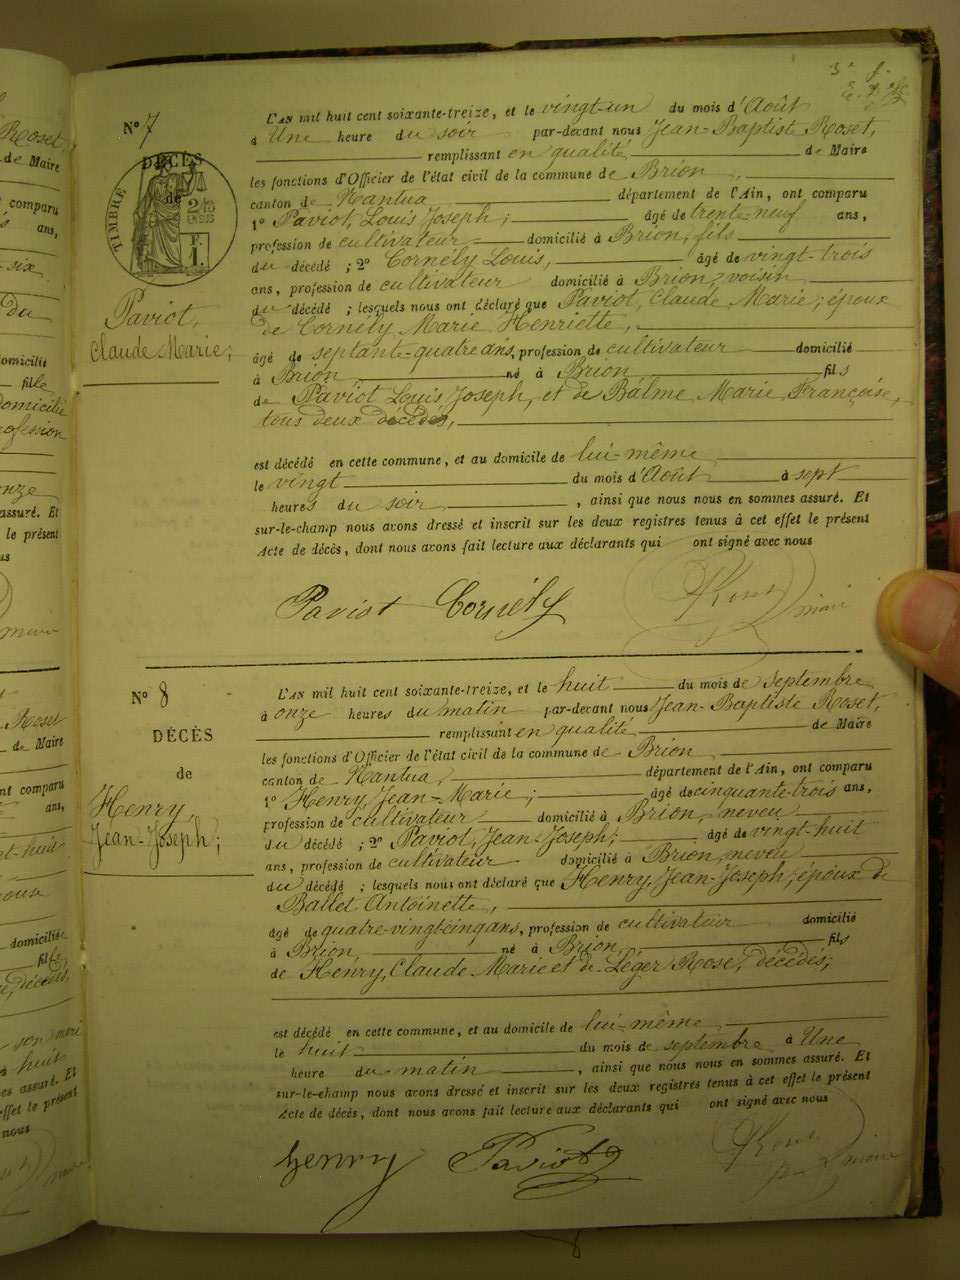 N° 7
DÉCÈS
de
TIMBRE
Paviot,
Claude Marie;
L'AN mil huit cent soixante-treize, et le vingt-un du mois d'Août
à Une heure du soir par-devant nous Jean-Baptiste Roset,
remplissant en qualité de Maire
les fonctions d'Officier de l'état civil de la commune de Brion,
canton de Nantua département de l'Ain, ont comparu
1° Paviot, Louis Joseph; âgé de trente-neuf ans,
profession de cultivateur domicilié à Brion, fils
du décédé; 2° Cornély Louis, âgé de vingt-trois
ans, profession de cultivateur domicilié à Brion, voisin
du décédé; lesquels nous ont déclaré que Paviot, Claude Marie; époux
de Cornély Marie Henriette,
âgé de septante-quatre ans, profession de cultivateur domicilié
à Brion né à Brion fils
de Paviot Louis Joseph, et de Balme Marie Françoise,
tous deux décédés,
est décédé en cette commune, et au domicile de lui-même
le vingt du mois d'Août à sept
heures du soir, ainsi que nous nous en sommes assuré. Et
sur-le-champ nous avons dressé et inscrit sur les deux registres tenus à cet effet le présent
Acte de décès, dont nous avons fait lecture aux déclarants qui ont signé avec nous
Paviot Cornély Roset maire
N° 8
DÉCÈS
de
Henry,
Jean-Joseph;
L'AN mil huit cent soixante-treize, et le huit du mois de septembre
à onze heures du matin par-devant nous Jean-Baptiste Roset,
remplissant en qualité de Maire
les fonctions d'Officier de l'état civil de la commune de Brion
canton de Nantua, département de l'Ain, ont comparu
1° Henry, Jean-Marie; âgé de cinquante-trois ans,
profession de cultivateur domicilié à Brion, neveu
du décédé; 2° Paviot, Jean-Joseph; âgé de vingt-huit
ans, profession de cultivateur domicilié à Brion, neveu
du décédé; lesquels nous ont déclaré que Henry, Jean-Joseph; époux de
Ballet Antoinette,
âgé de quatre-vingt cinq ans, profession de cultivateur domicilié
à Brion, né à Brion, fils
de Henry, Claude Marie et de Léger Rose, décédés;
est décédé en cette commune, et au domicile de lui-même
le huit du mois de septembre à Une
heure du matin, ainsi que nous nous en sommes assuré. Et
sur-le-champ nous avons dressé et inscrit sur les deux registres tenus à cet effet le présent
Acte de décès, dont nous avons fait lecture aux déclarants qui ont signé avec nous
henry Paviot Roset